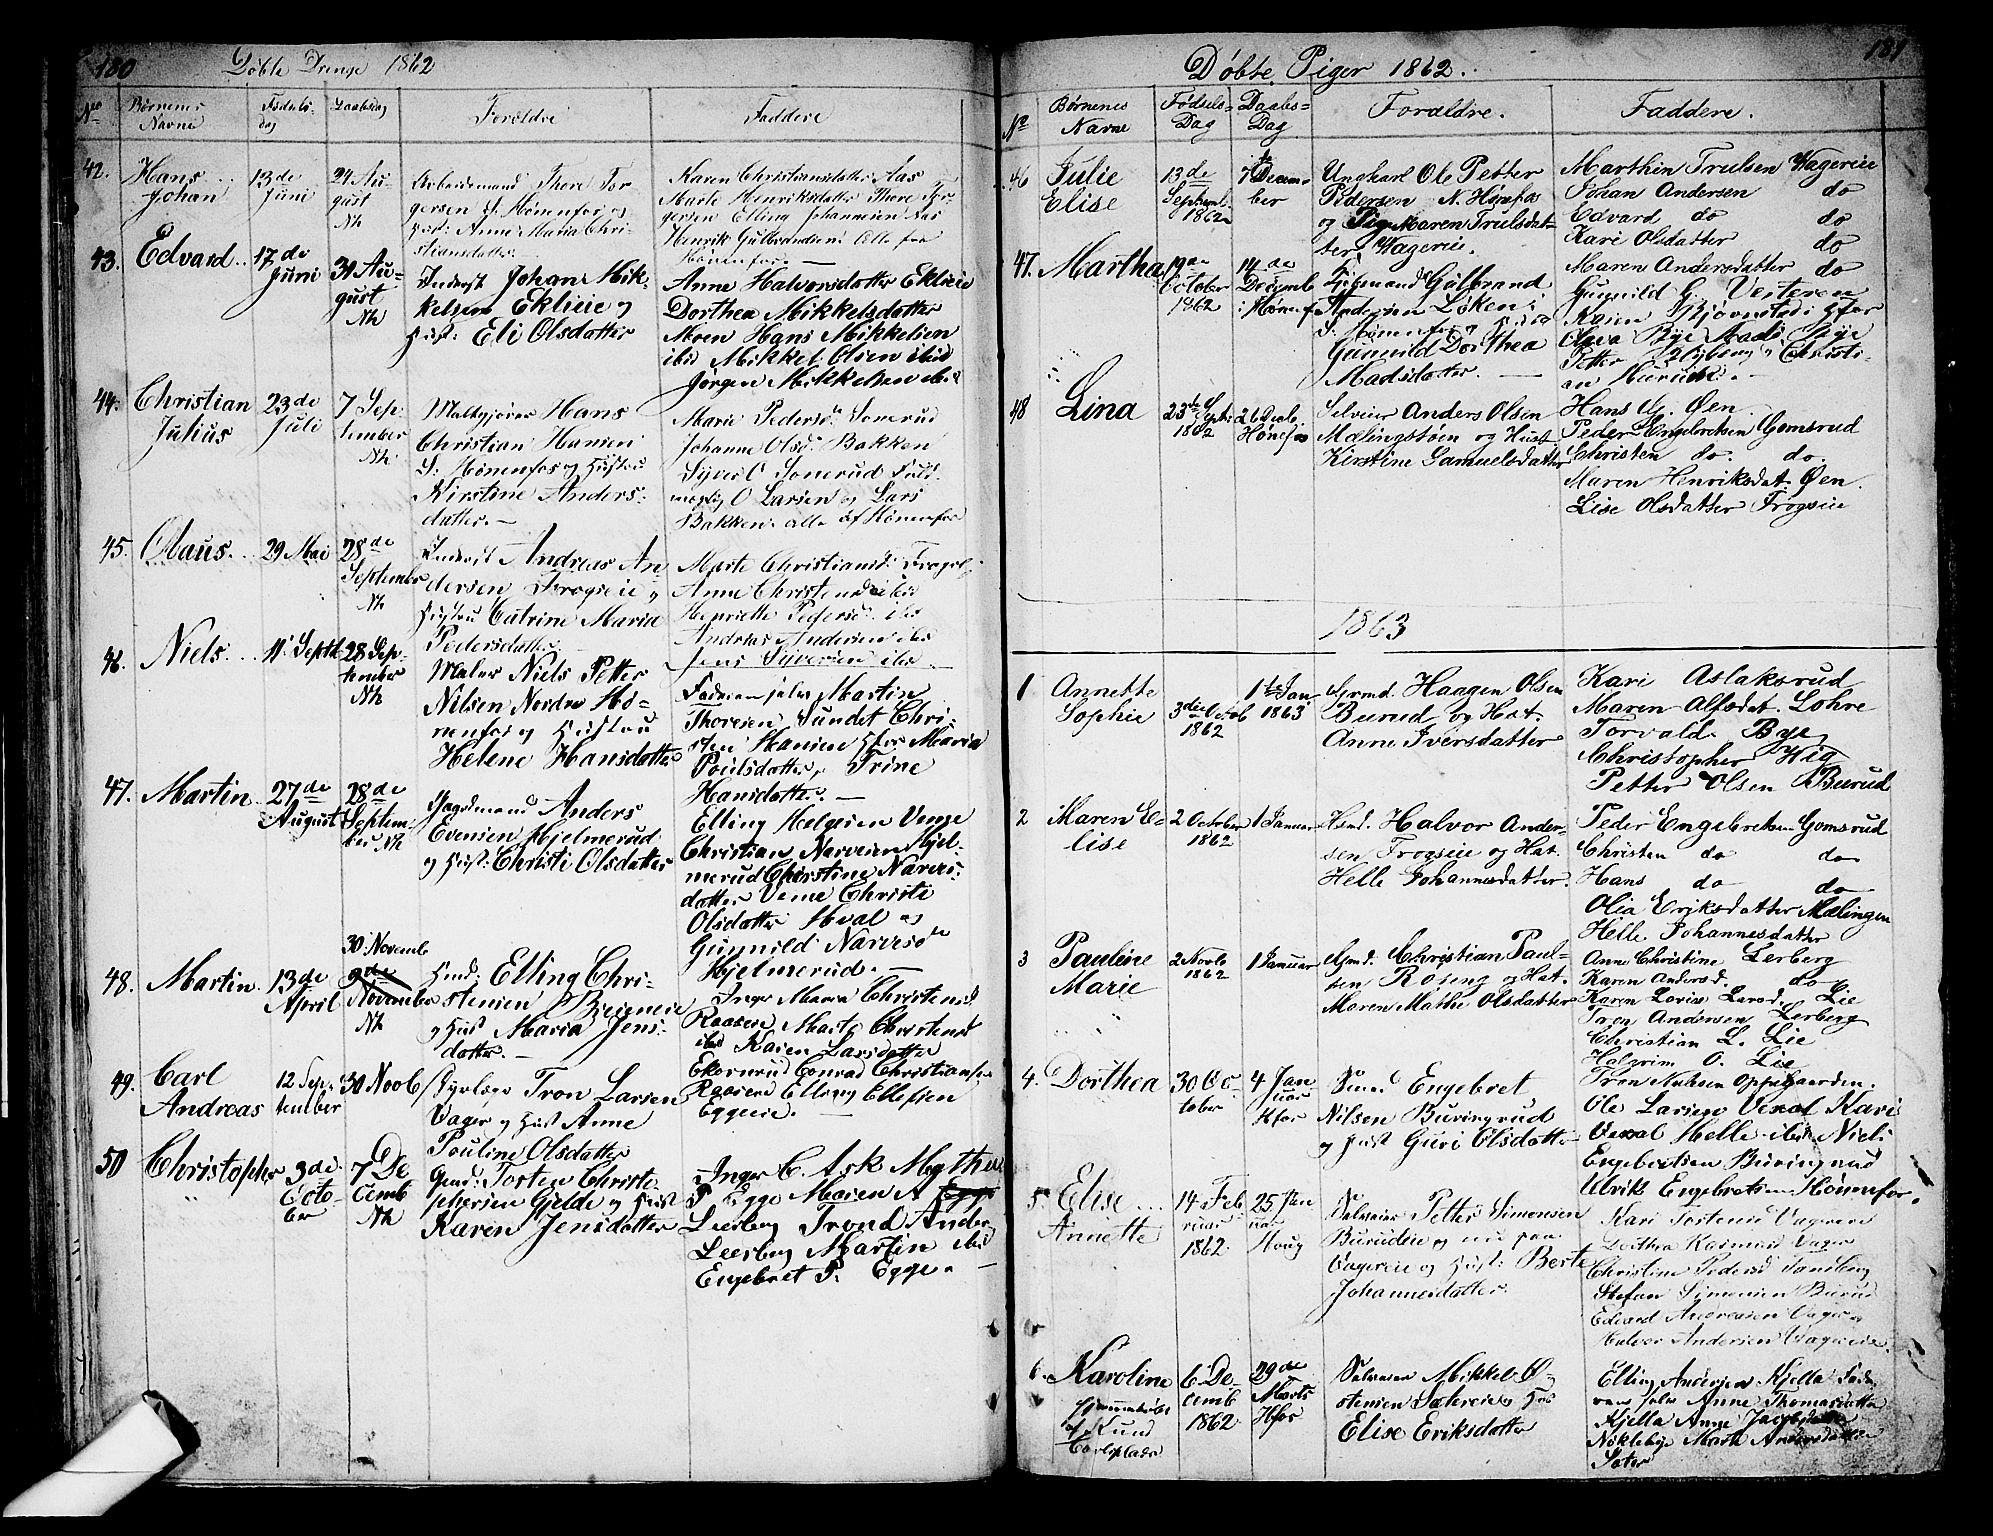 130
Döbte Drenge 1862
No
Børnenes Navne
Fødsels-dag
Daabsdag
Forældre
Faddere
42.
Hans Johan
13de Juni
24 August
Nk
Arbeidsmand Thore Torgersen S. Hønenfos og
Hust: Anne Maria Christiansdatter
Karen Christiansdatter Aas
Marte Henriksdatter Thore Torgersen Elling Johannesen Aas
Henrik Gulbrandsen Alle fra
Hønenfos.
43.
Edvard
17de Juni
31 August
Nk
Inderst Johan Mikkelsen Eklieie og
Hust: Eli Olsdatter
Anne Halvorsdatter Eklieie
Dorthea Mikkelsdatter
Moen Hans Mikkelsen
ibid Mikkel Olsen ibid
Jørgen Mikkelsen ibid
44.
Christian Julius
23de Juli
7 September
Nk
Hans
Christian Hansen
S. Hønenfos og Hustru
Kirstine Andersdatter.
Marie Pedersd.
Johanne Olsd. Bakken
O Larsen og Lars
Bakken. alle af Hønenfos
45.
Olaus.
29 Mai
28de September
Nk
Inderst Andreas Andersen Frogseie og
Hustru Catrine Maria
Pedersdatter.
Marte Christiansd:
Anne Christensd ibid
Henriette Pedersd. ibd
Andreas Andersen ibd
Jens Syversen ibd
46.
Niels
11 Septb
28 September
Nk
Maler Niels Petter
Nilsen Nordre Hønenfos og Hustru
Helene Hansdatter
Martin
Thoresen Sundet Christen Hansen Hfos Maria
Poulsdatter, Trine
Hansdatter.
47.
Martin
27de August
28de September Nk
Gaardmand Anders
Evensen Hjelmerud
og Hust: Christi Olsdatter
Elling Helgesen Veme
Christian Narvesen Hjelmerud Christine Narvesdatter Veme Christi
Olsdatter Hval og
Gunnild Narvesd.
Hjelmerud.
48.
Martin.
13de April
30 Novemb
9de November
Nk
Hmd: Elling Christensen
og Hust Maria Jensdatter.
Inger Maria Christensd
Raaseie Marte Christensd
ibid Karen Larsdatter
Ekornrud Conrad Christiansen
Raaseie Elling Ellefsen
Eggeie.
49.
Carl Andreas
12 September
30 Novb
Dyrlæge Tron Larsen
Vager og Hust Anne
Pouline Olsdatter
50
Christopher
3de October
7 December
Nk
Gmd: Torsten Christophersen Gjelde og Hust
Karen Jensdatter
Inger C. Ask
P. Egge Maren A
Leerberg Trond Anders
Leerberg Martin ibid
Engebret P. Egge.
131
Døbte Piger 1862.
No
Børnenes Navne
Fødsels-Dag
Daabs-Dag
Forældre.
Faddere.
46
Julie Elise
13de Septemb. 1862
7de December
Ungkarl Ole Petter
Pedersen N. Hønefos
og Pige Maren Trulsdatter Vagereie.
Marthin Trulsen Vagereie
Johan Andersen do
Edvard do do
Kari Olsdatter do
Maren Andersdatter do
47.
Martha
19de October 1862
14de Decemb
Hønefos
Kjøbmand Gulbrand
Andersen Løken i
S. Hønenfos og Hustru
Gunnild Dorthea
Madsdatter.
Gunnild G. Vesteren
Karen Gjøvenstad Hfos
Petter Nyborg, Christian
48
Lina
23de Septb 1862
26 Decb. Hønefos
Selveier Anders Olsen
Mælingstøen og Hust
Kirstine Samuelsdatter
Hans G. Øen.
Peder Engebretsen Gomsrud
Christen do. do.
Maren Henriksdat. Øen.
Lise Olsdatter Frogseie
1863
1
Annette Sophie
3die Octob 1862
1ste Jan 1863
Grmd. Haagen Olsen
Burud og Hst.
Anne Iversdatter
Kari Aslaksrud
Maren Alfsdat. Lohre
Torvald Bye
Christopher Hig
Petter Olsen Burud
2
Maren Elise
2 October 1862
1 Januar
Hsmd. Halvor Andersen Frogseie og Hst.
Helle Johannesdatter.
Peder Engebretsen Gomsrud
Christen do do
Hans do do
Olia Eriksdatter Mælingen
Helle Johannesdatter
3
Pauline Marie
2 Novb 1862
1 Januar
Gmd. Christian Paulsen Roseng og Hst.
Maren Mathe Olsdatter
Ane Christine Lerberg
Karen Andersd. do
Karen Lovise Larsd. Lie
Tron Andersen Lerberg
Christian L. Lie
Halgrim O. Lie
4.
Dorthea
30 October
4 Januar
Hfos
Engebret
Nilsen Buringrud
og Hust Guri Olsdatter
Oppegaarden.
Ole Larsen Vexal Kari
Vexal Helle ibid Niels
Engebretsen Buringrud
Ulrik Engebretsen Hønnefos.
5.
Elise Annette
14 Februar 1862
25 Januar
Houg
Selveier Petter Simensen
Burudeie og nu paa
Vagereie og Hust: Berte
Johannesdatter.
Kari Torstensd Vagereie
Dorthea Rasmusd Vager
Christine Pedersd
Stefan Simensen Burud
Edvard Andreasen Vager
Halvor Andersen Vagereie.
6.
Karoline
6 December 1862
29de Marts
Hfos
Selveier Mikkel Østensen Sætereie og Hst
Elise Eriksdatter
Elling Andersen Kjella
Anne Thomasdatter
Kjella Anne
Nøklebye Marte Andersdatter
Sæter